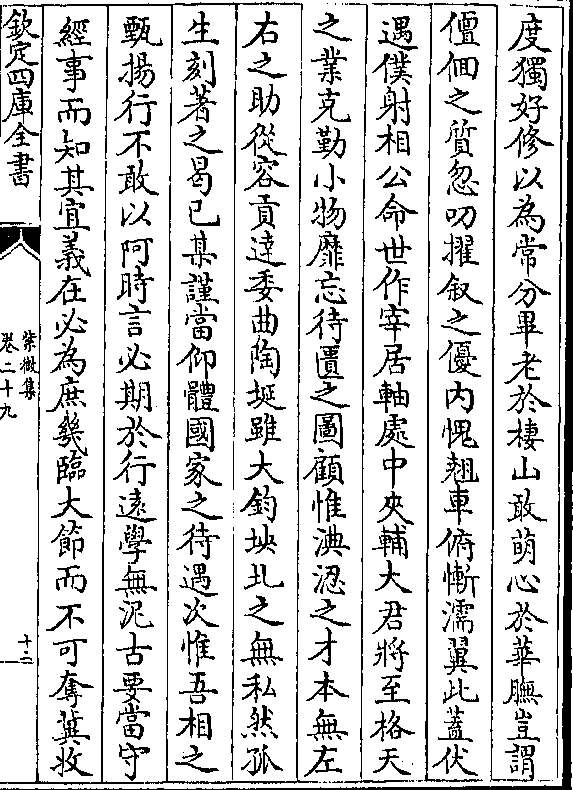 度獨好修以為常分畢老於棲山敢萌心於華膴豈謂
儃佪之質忽叨擢叙之優内愧翹車俯慚濡翼此蓋伏
遇僕射相公命世作宰居軸處中夾輔大君將至格天
之業克勤小物靡忘待匱之圖顧惟淟涊之才本無左
右之助從容貢達委曲陶埏雖大鈞坱圠之無私然孤
生刻著之曷已某謹當仰體國家之待遇次惟吾相之
甄揚行不敢以阿時言必期於行遠學無泥古要當守
經事而知其宜義在必為庶幾臨大節而不可奪冀收
欽定四庫全書
紫微集
卷二十九
十二